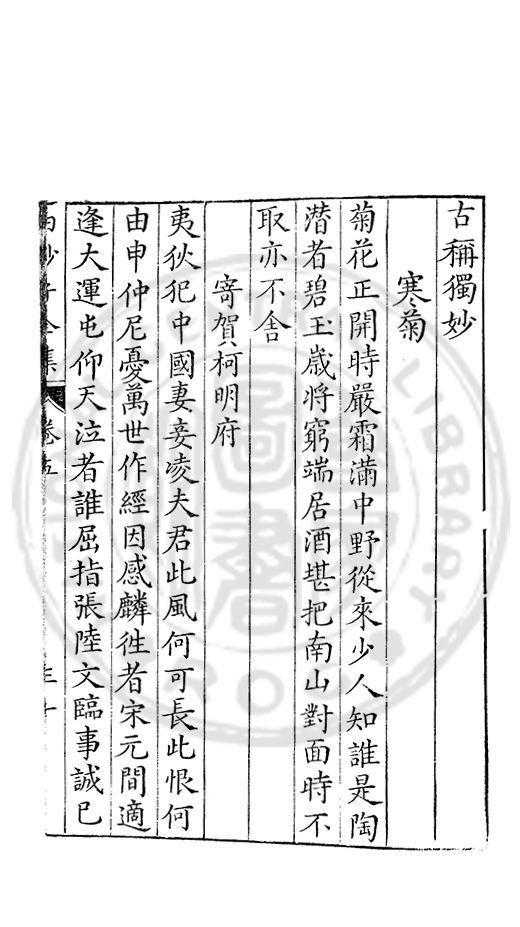 古稱獨妙
寒菊
菊花正開時嚴霜滿中野從來少人知誰是陶
潛者碧玉歲將窮端居酒堪把南山對面時不
取亦不舍
寄賀柯明府
夷狄犯中國妻妾凌夫君此風何可長此恨何
由申仲尼憂萬世作經因感麟徃者宋元間適
逢大運屯仰天泣者誰屈指張陸文臨事誠已
全集
卷五